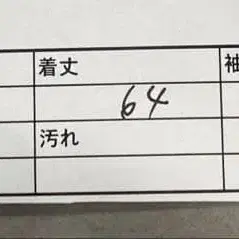 着丈
64
汚れ